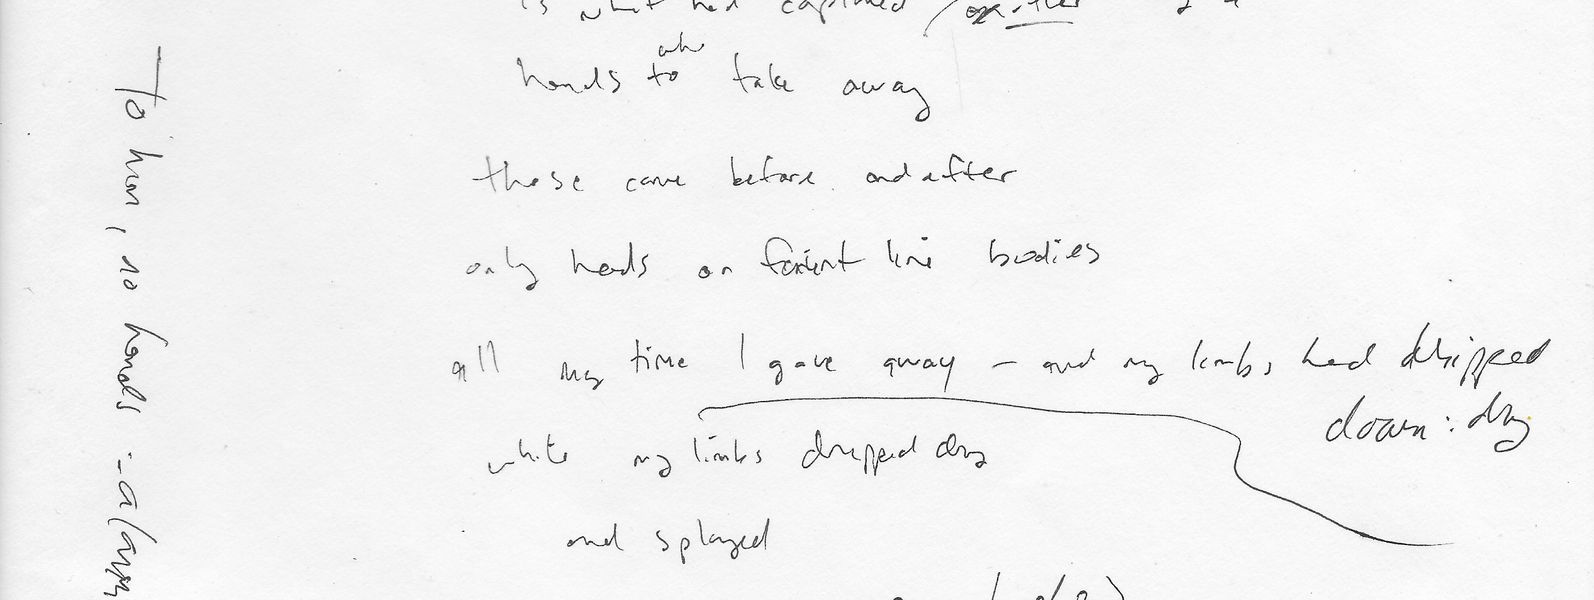 is what had captured
who
hands to take away
these came before and after
only heads on line bodies
all my time I gave away – and my limbs had dripped
down: dry
while my limbs dripped dry
and splayed
To him, no hands